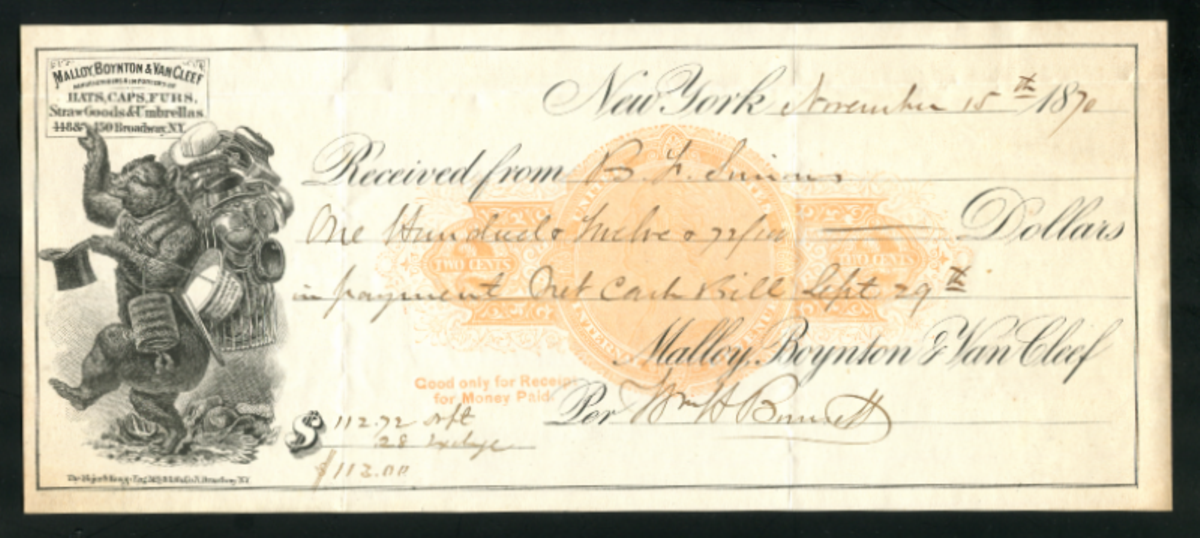 MALLOY, BOYNTON & VAN CLEEF
MANUFACTURERS & IMPORTERS OF
HATS, CAPS, FURS,
Straw Goods & Umbrellas
448 & 450 Broadway, N.Y.
New York November 15th 1870
Received from B. F. Simons
One Hundred & Twelve & 72/100 Dollars
TWO CENTS
TWO CENTS
in payment Net Cash Bill Sept 29th
Malloy, Boynton & Van Cleef
Good only for Receipt
for Money Paid.
Per Wm H
$ 112.72
28
$113.00
The Major & Knapp Broadway N.Y.